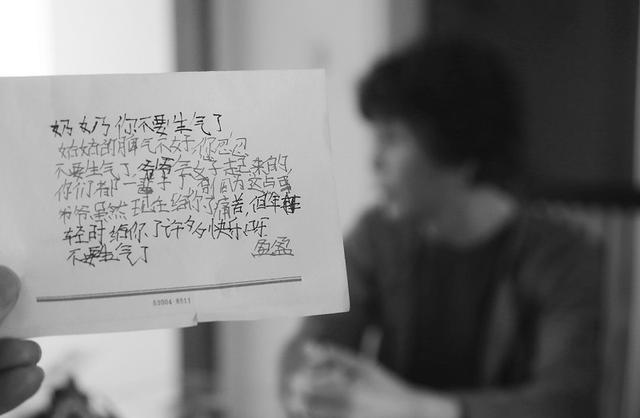 奶奶你不要生气了
姑姑的脾气不好,你忍忍
不要生气了,爷爷会好起来的,
你们都一辈子了,别为这点事
爷爷虽然现在给你了痛苦,但年轻
轻时给你了许多多快乐呀
不要生气了
盈盈
53004-8511